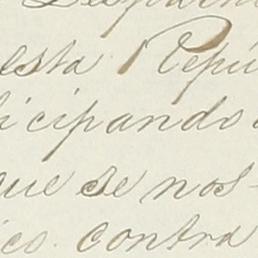 esta Repú
icipando
que se nos
ico contra